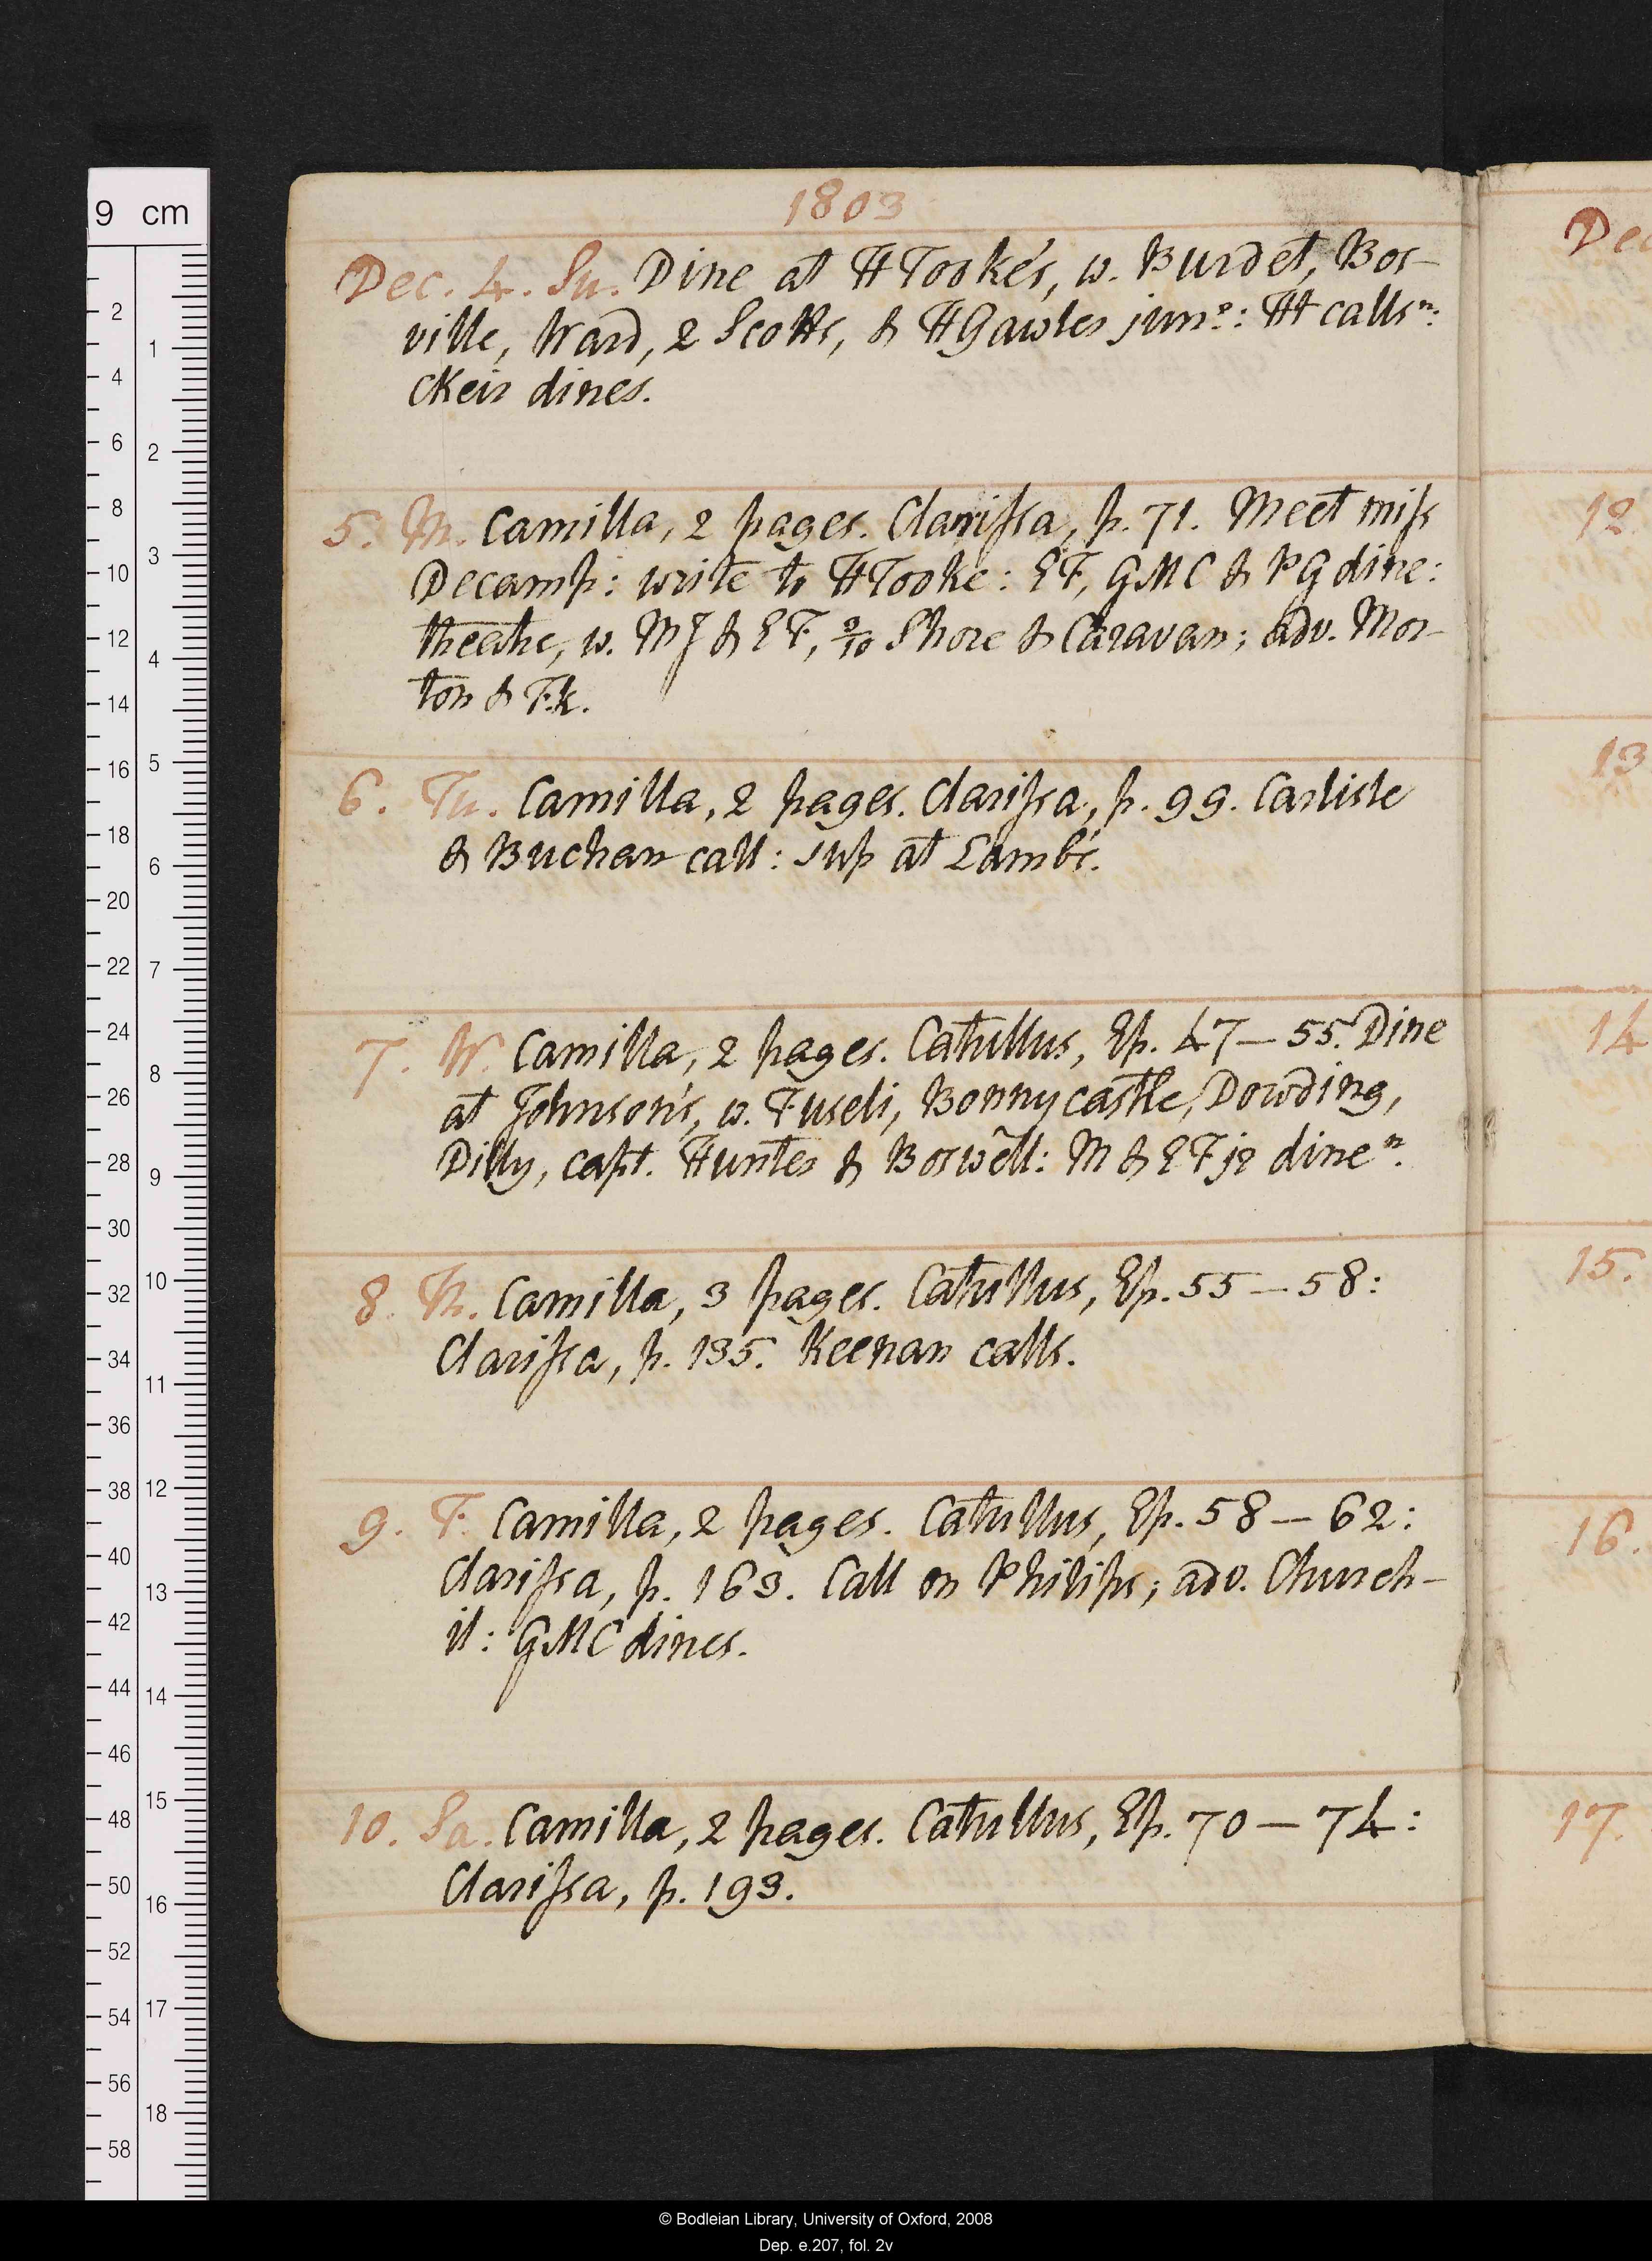 1803
Dec. 4. Su. Dine at HTooke's, w. Burdet, Bos-
ville, Ward, 2 Scotts, & HGawler junr: Ht calls n:
cKeir dines.
5. M. Camilla, 2 pages. Clarissa, p. 71. Meet miss
Decamp: write to HTooke: EF, GMC & PG dine:
theatre, w. MJ & EF, 2/10 Shore & Caravan; adv. Mor-
ton & F.k.
6. Tu. Camilla, 2 pages. Clarissa, p. 99. Carlisle
& Buchan call: sup at Lamb's.
7. W. Camilla, 2 pages. Catullus, Ep. 47—55. Dine
at Johnson's, w. Fuseli, Bonnycastle, Dowding,
Dilly, capt. Hunter & Boswell: M & EF jr dine n.
8. Th. Camilla, 3 pages. Catullus, Ep. 55—58:
Clarissa, p. 135. Keenan calls.
9. F. Camilla, 2 pages. Catullus, Ep. 58—62:
Clarissa, p. 163. Call on Philips; adv. Church-
il: GMC dines.
10. Sa. Camilla, 2 pages. Catullus, Ep. 70—74:
Clarissa, p. 193.
Dec
12
13
14
15.
16.
17.
9 cm
2
4
6
8
10
12
14
16
18
20
22
24
26
28
30
32
34
36
38
40
42
44
46
48
50
52
54
56
58
1
2
3
4
5
6
7
8
9
10
11
12
13
14
15
16
17
18
© Bodleian Library, University of Oxford, 2008
Dep. e.207, fol. 2v